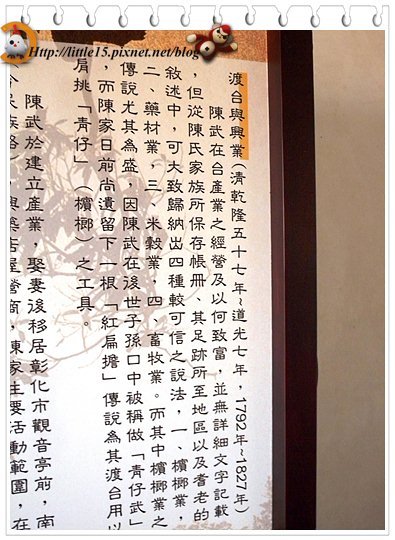 Http://little15.pixnet.net/blog
渡台與興業(清乾隆五十七年~道光七年，1792年~1827年)
陳武在台產業之經營及以何致富，並無詳細文字記載
，但從陳氏家族所保存帳冊、其足跡所至地區以及耆老的
敘述中，可大致歸納出四種較可信之說法，一、檳榔業，
二、藥材業，三、米穀業，四、畜牧業。而其中檳榔業之
傳說尤其為盛，因陳武在後世子孫口中被稱做「青仔武」
，而陳家日前尚遺留下一根「紅扁擔」傳說為其渡台用以
肩挑「青仔」（檳榔）之工具。
陳武於建立產業，娶妻後移居彰化市觀音亭前，南
陳家主要活動範圍，在